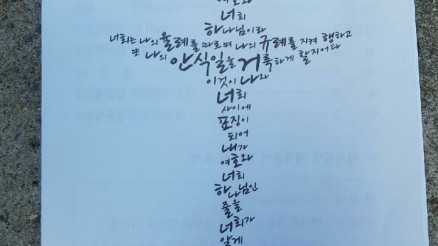 여호와
너희
하나님이라
너희는 나의 율례를 따르며 나의 규례를 지켜 행하고
또 나의 안식일을 거룩하게 할지어다
이것이 나와
너희
사이에
표징이
되어
내가
여호와
너희
하나님인
줄을
너희가
알게